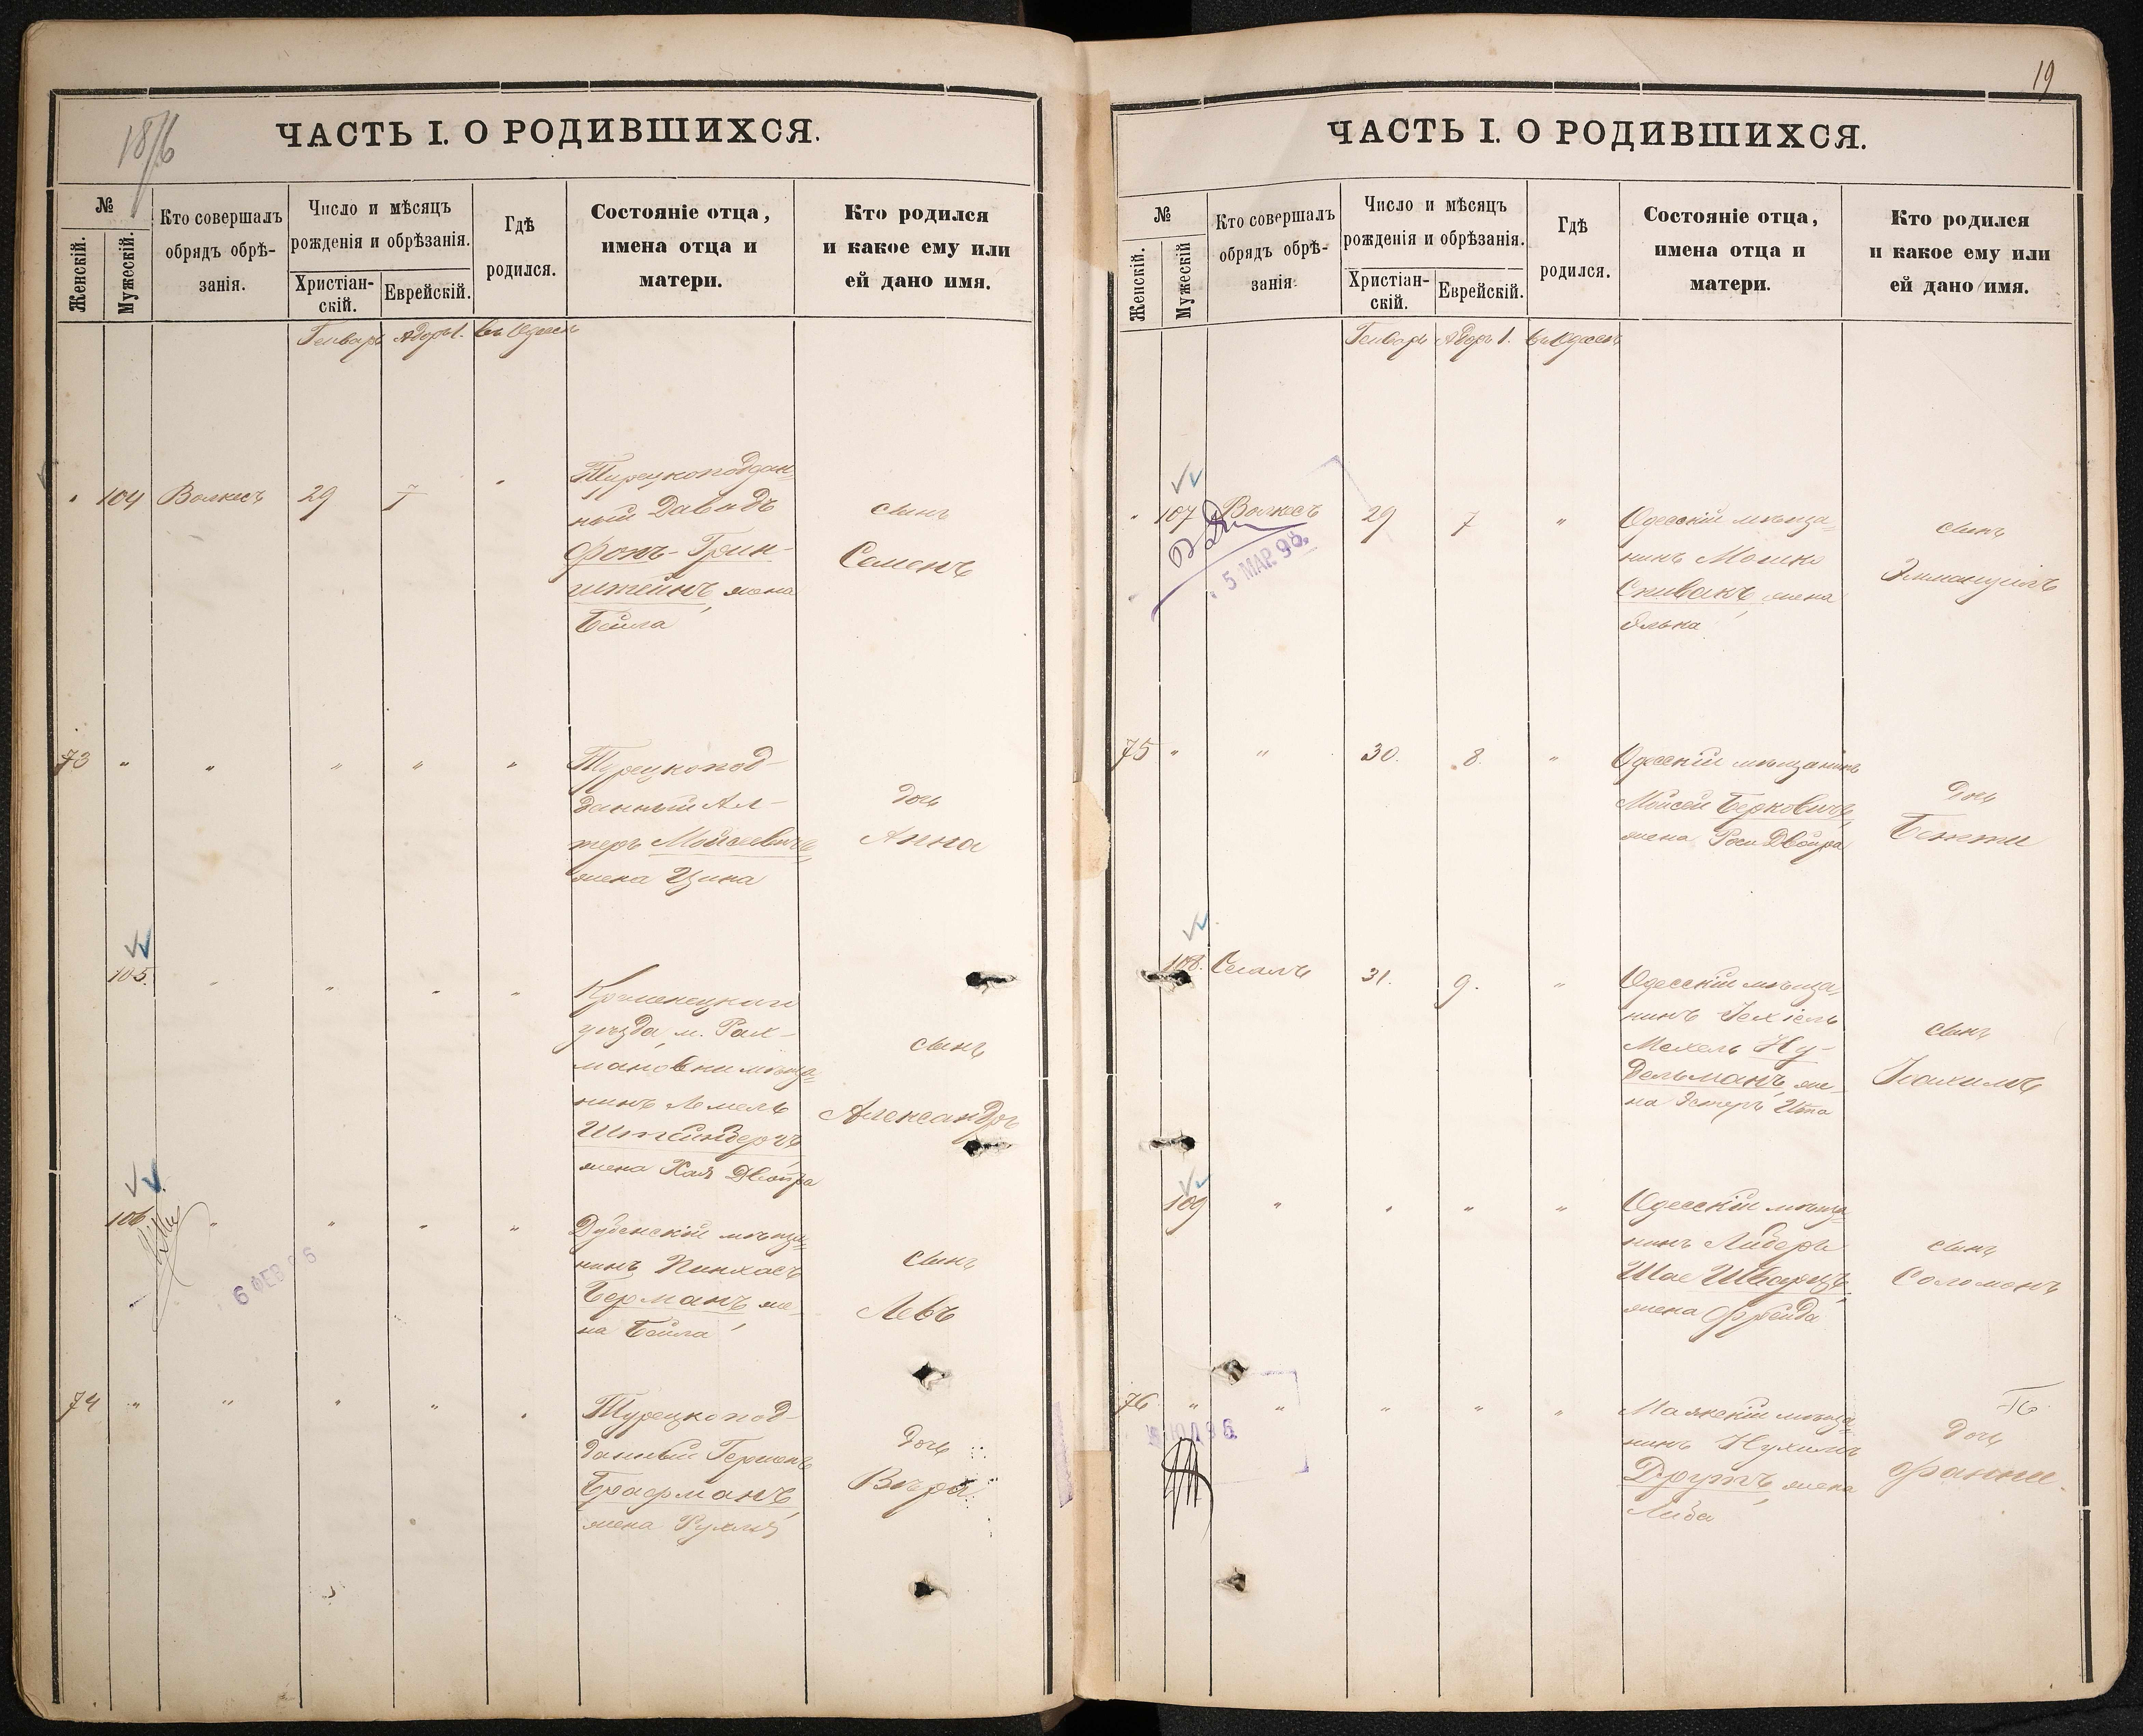 1876
ЧАСТЬ I. О РОДИВШИХСЯ.
№
Женскій.
Мужескій.
Кто совершалъ
обрядъ обрѣ-
занія.
Число и мѣсяцъ
рожденія и обрѣзанія.
Христіан-
скій.
Еврейскій.
Гдѣ
родился.
Состояніе отца,
имена отца и
матери.
Кто родился
и какое ему или
ей дано имя.
Генварь Адаръ 1. въ Одессѣ
" 104 Волкесъ 29 7 "
Турецкоподдан-
ный Давидъ
Фонъ-Грин-
штейнъ, жена
Бейла
сынъ
Семенъ
73 " " " " "
Турецкопод-
данный Ал-
теръ Мойсеевичъ,
жена Цина
дочь
Анна
105. " " " "
Кременецкаго
уѣзда, м. Рах-
мановки мѣща-
нинъ Лемель
Штейнбергъ
жена Хая Двойра
сынъ
Александръ
106 " " " "
Дубенскій мѣща-
нинъ Пинхасъ
Берманъ, же-
на Бейла
сынъ
Левъ
6 ФЕВ 96
74 " " " " "
Турецкопод-
данный Гершонъ
Графманъ,
жена Рухля
дочь
Вѣра
19
ЧАСТЬ I. О РОДИВШИХСЯ.
№
Женскій.
Мужескій
Кто совершалъ
обрядъ обрѣ-
занія.
Число и мѣсяцъ
рожденія и обрѣзанія.
Христіан-
скій.
Еврейскій.
Гдѣ
родился.
Состояніе отца,
имена отца и
матери.
Кто родился
и какое ему или
ей дано имя.
Генварь Адаръ 1. въ Одессѣ
" 107 Волкесъ 29 7 "
5 МАР. 98.
Одесскій мѣща-
нинъ Мошко
Спивакъ, жена
Элька
сынъ
Эммануилъ
75 " " 30. 8. "
Одесскій мѣщанинъ
Мойсей Берковичъ,
жена Рося Двойра
дочь
Бетти
108. Сегалъ 31. 9. "
Одесскій мѣща-
нинъ Іехіель
Мехель Ну-
дельманъ, же-
на Эстеръ Ита
сынъ
Іоахимъ
109 " " " "
Одесскій мѣща-
нинъ Либеръ
Шае Шварцъ,
жена Фрейда
сынъ
Соломонъ
76 " " " " "
Маякскій мѣща-
нинъ Нухимъ
Друтъ, жена
Либа
дочь
Фанни.